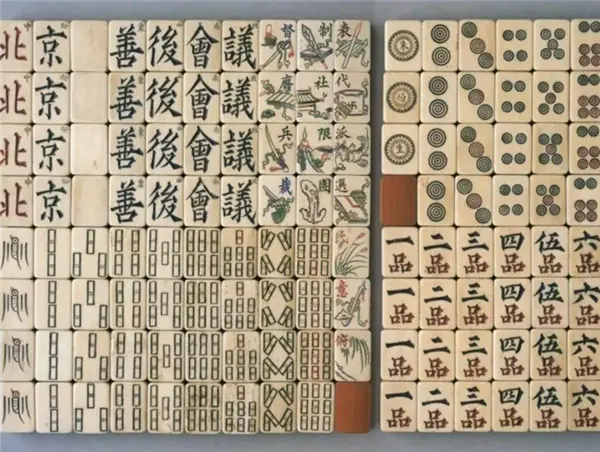 北 京 善 後 會 議 督 制
北 京 善 後 會 議 廢 社 代
北 京 善 後 會 議 兵 限 派
北 京 善 後 會 議 裁 團 選
民
意
一品 二品 三品 四品 伍品 六品
一品 二品 三品 四品 伍品 六品
一品 二品 三品 四品 伍品 六品
一品 二品 三品 四品 伍品 六品